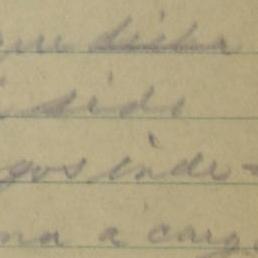 que dicha
sido
gos inde-
na a carg